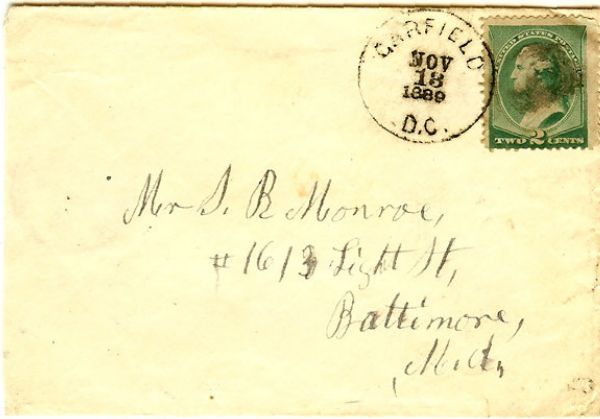 GARFIELD
NOV
13
1889
D.C.
UNITED STATES POSTAGE
TWO 2 CENTS
Mr S. R Monroe,
#1613 Light St,
Baltimore,
Md,